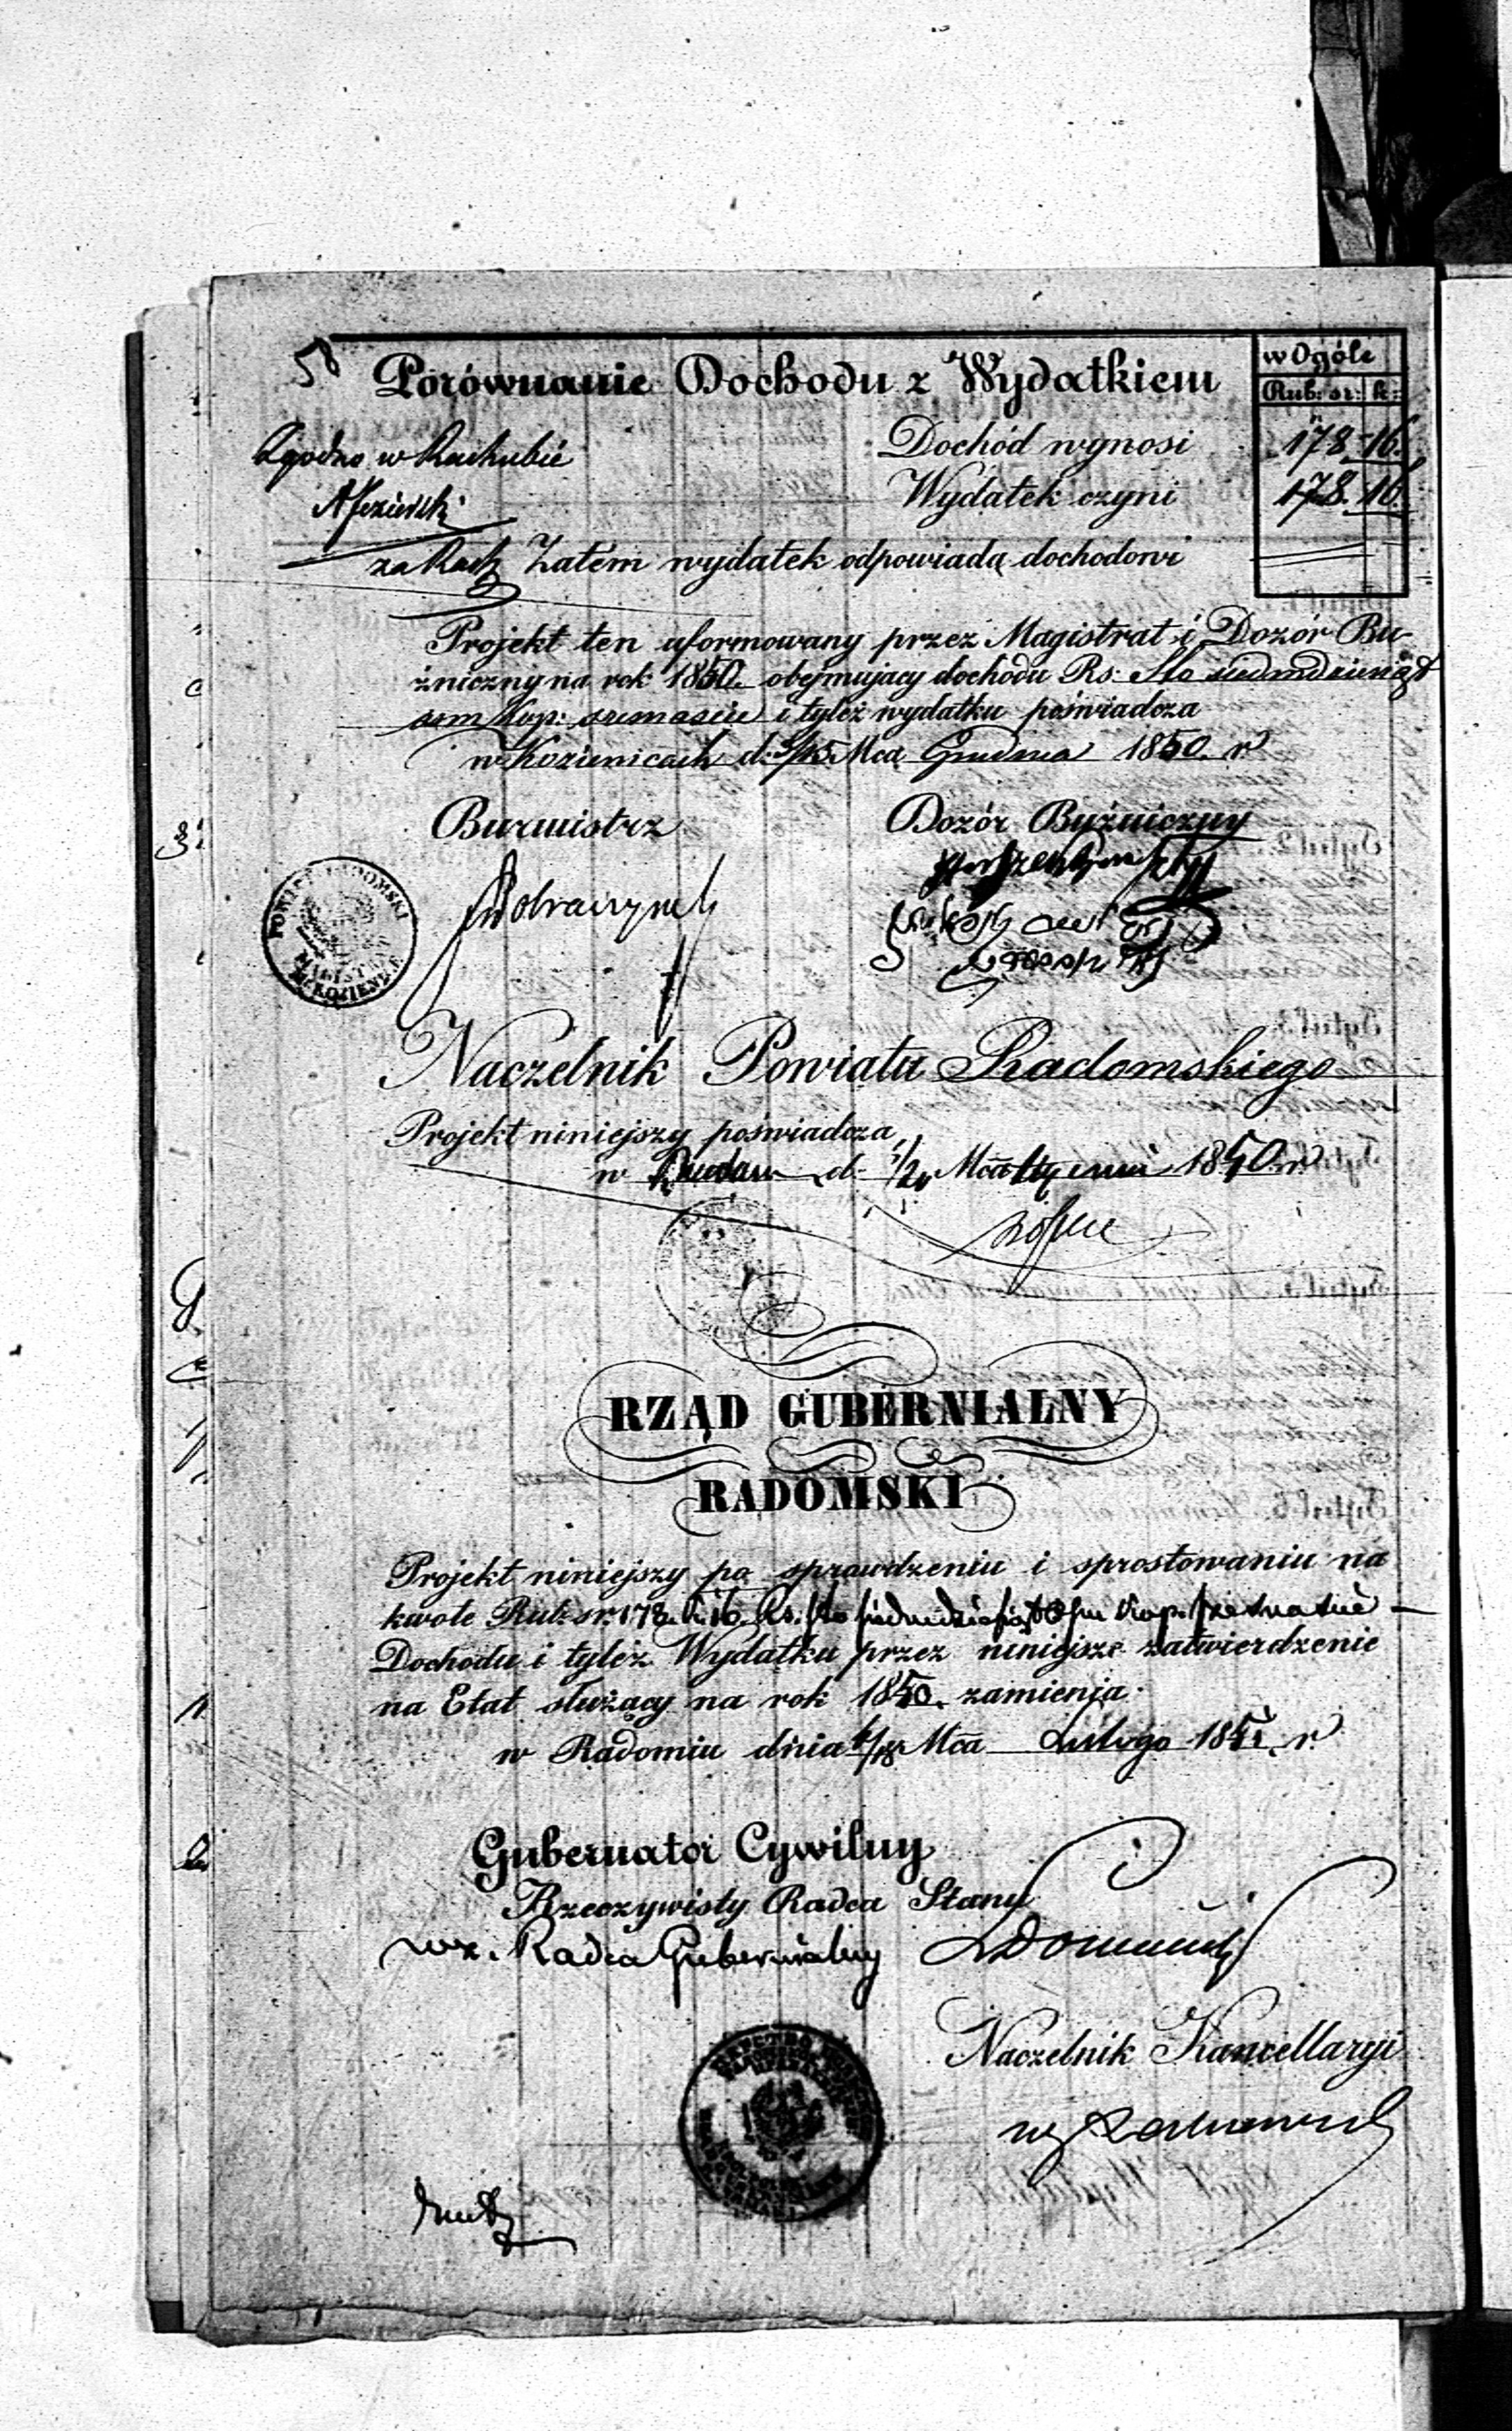 58
Porównanie Dochodu z Wydatkiem
w Ogóle
Rub: sr: k:
Zgodno w Rachubie
Dochód wynosi 178. 16.
Wydatek czyni 178. 16.
za Rach
Zatem wydatek odpowiada dochodowi
Projekt ten uformowany przez Magistrat i Dozór Bu-
żniczny na rok 1850. obejmujący dochodu Rs: Sto siedmdziesiąt
ośm kop: szesnaście i tyleż wydatku poświadcza
w Kozienicach d: 3/15 Mca Grudnia 1850. r
Burmistrz
Dozór Bużniczny
POWIAT RADOMSKI
Naczelnik Powiatu Radomskiego
Projekt niniejszy poświadcza
w d. Mca 1850. r
RZĄD GUBERNIALNY
RADOMSKI
Projekt niniejszy po sprawdzeniu i sprostowaniu na
kwotę Rub: sr: 178 k. 16. Rs. sto siedmdziesiąt ośm kop. szesnaście —
Dochodu i tyleż Wydatku przez niniejsze zatwierdzenie
na Etat służący na rok 1850. zamienia.
w Radomiu dnia 6/18 Mca Lutego 1851. r
Gubernator Cywilny
Rzeczywisty Radca Stanu
wz. Radca Gubernialny
Naczelnik Kancellaryi